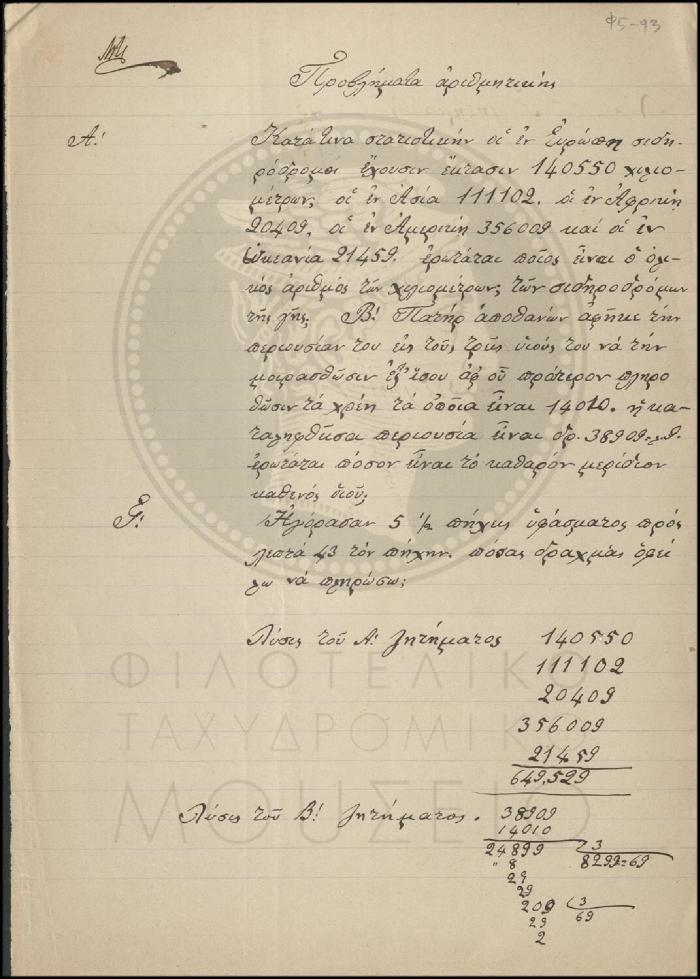 Φ5-93
Προβλήματα ἀριθμητικῆς
Α!
Κατά τινα στατιστικήν οἱ ἐν Εὐρώπῃ σιδη-
ρόδρομοι ἔχουσιν ἔκτασιν 140550 χιλιο-
μέτρων; οἱ ἐν Ἀσίᾳ 111102. οἱ ἐν Ἀφρικῇ
20409. οἱ ἐν Ἀμερικῇ 356009 καί οἱ ἐν
Ὠκεανίᾳ 21459. ἐρωτᾶται ποῖος εἶναι ὁ ὁλι-
κός ἀριθμός τῶν χιλιομέτρων; τῶν σιδηροδρόμων
τῆς γῆς; Β! Πατήρ ἀποθανών ἀφῆκε τήν
περιουσίαν του εἰς τούς τρεῖς υἱούς του νά τήν
μοιρασθῶσιν ἐξ ἴσου ἀφ οὗ πρότερον πληρο
θῶσιν τά χρέη τά ὁποῖα εἶναι 14010. ἡ κα-
ταληφθεῖσα περιουσία εἶναι δρ. 38909
ἐρωτᾶται πόσον εἶναι τό καθαρόν μερίδιον
καθενός υἱοῦ;
Γ!
Ἠγόρασαν 5 1/2 πήχεις ὑφάσματος πρός
λεπτά 43 τόν πήχην. πόσας δραχμάς ὀφεί
λω νά πληρώσω;
Λύσις τοῦ Α! ζητήματος 140550
111102
20409
356009
21459
649,529
Λύσις τοῦ Β! ζητήματος. 38909
14010
24899 3
" 8 8299=69
29
29
209 3
29 69
2
ΦΙΛΟΤΕΛΙΚΟ
ΤΑΧΥΔΡΟΜΙΚΟ
ΜΟΥΣΕΙΟ